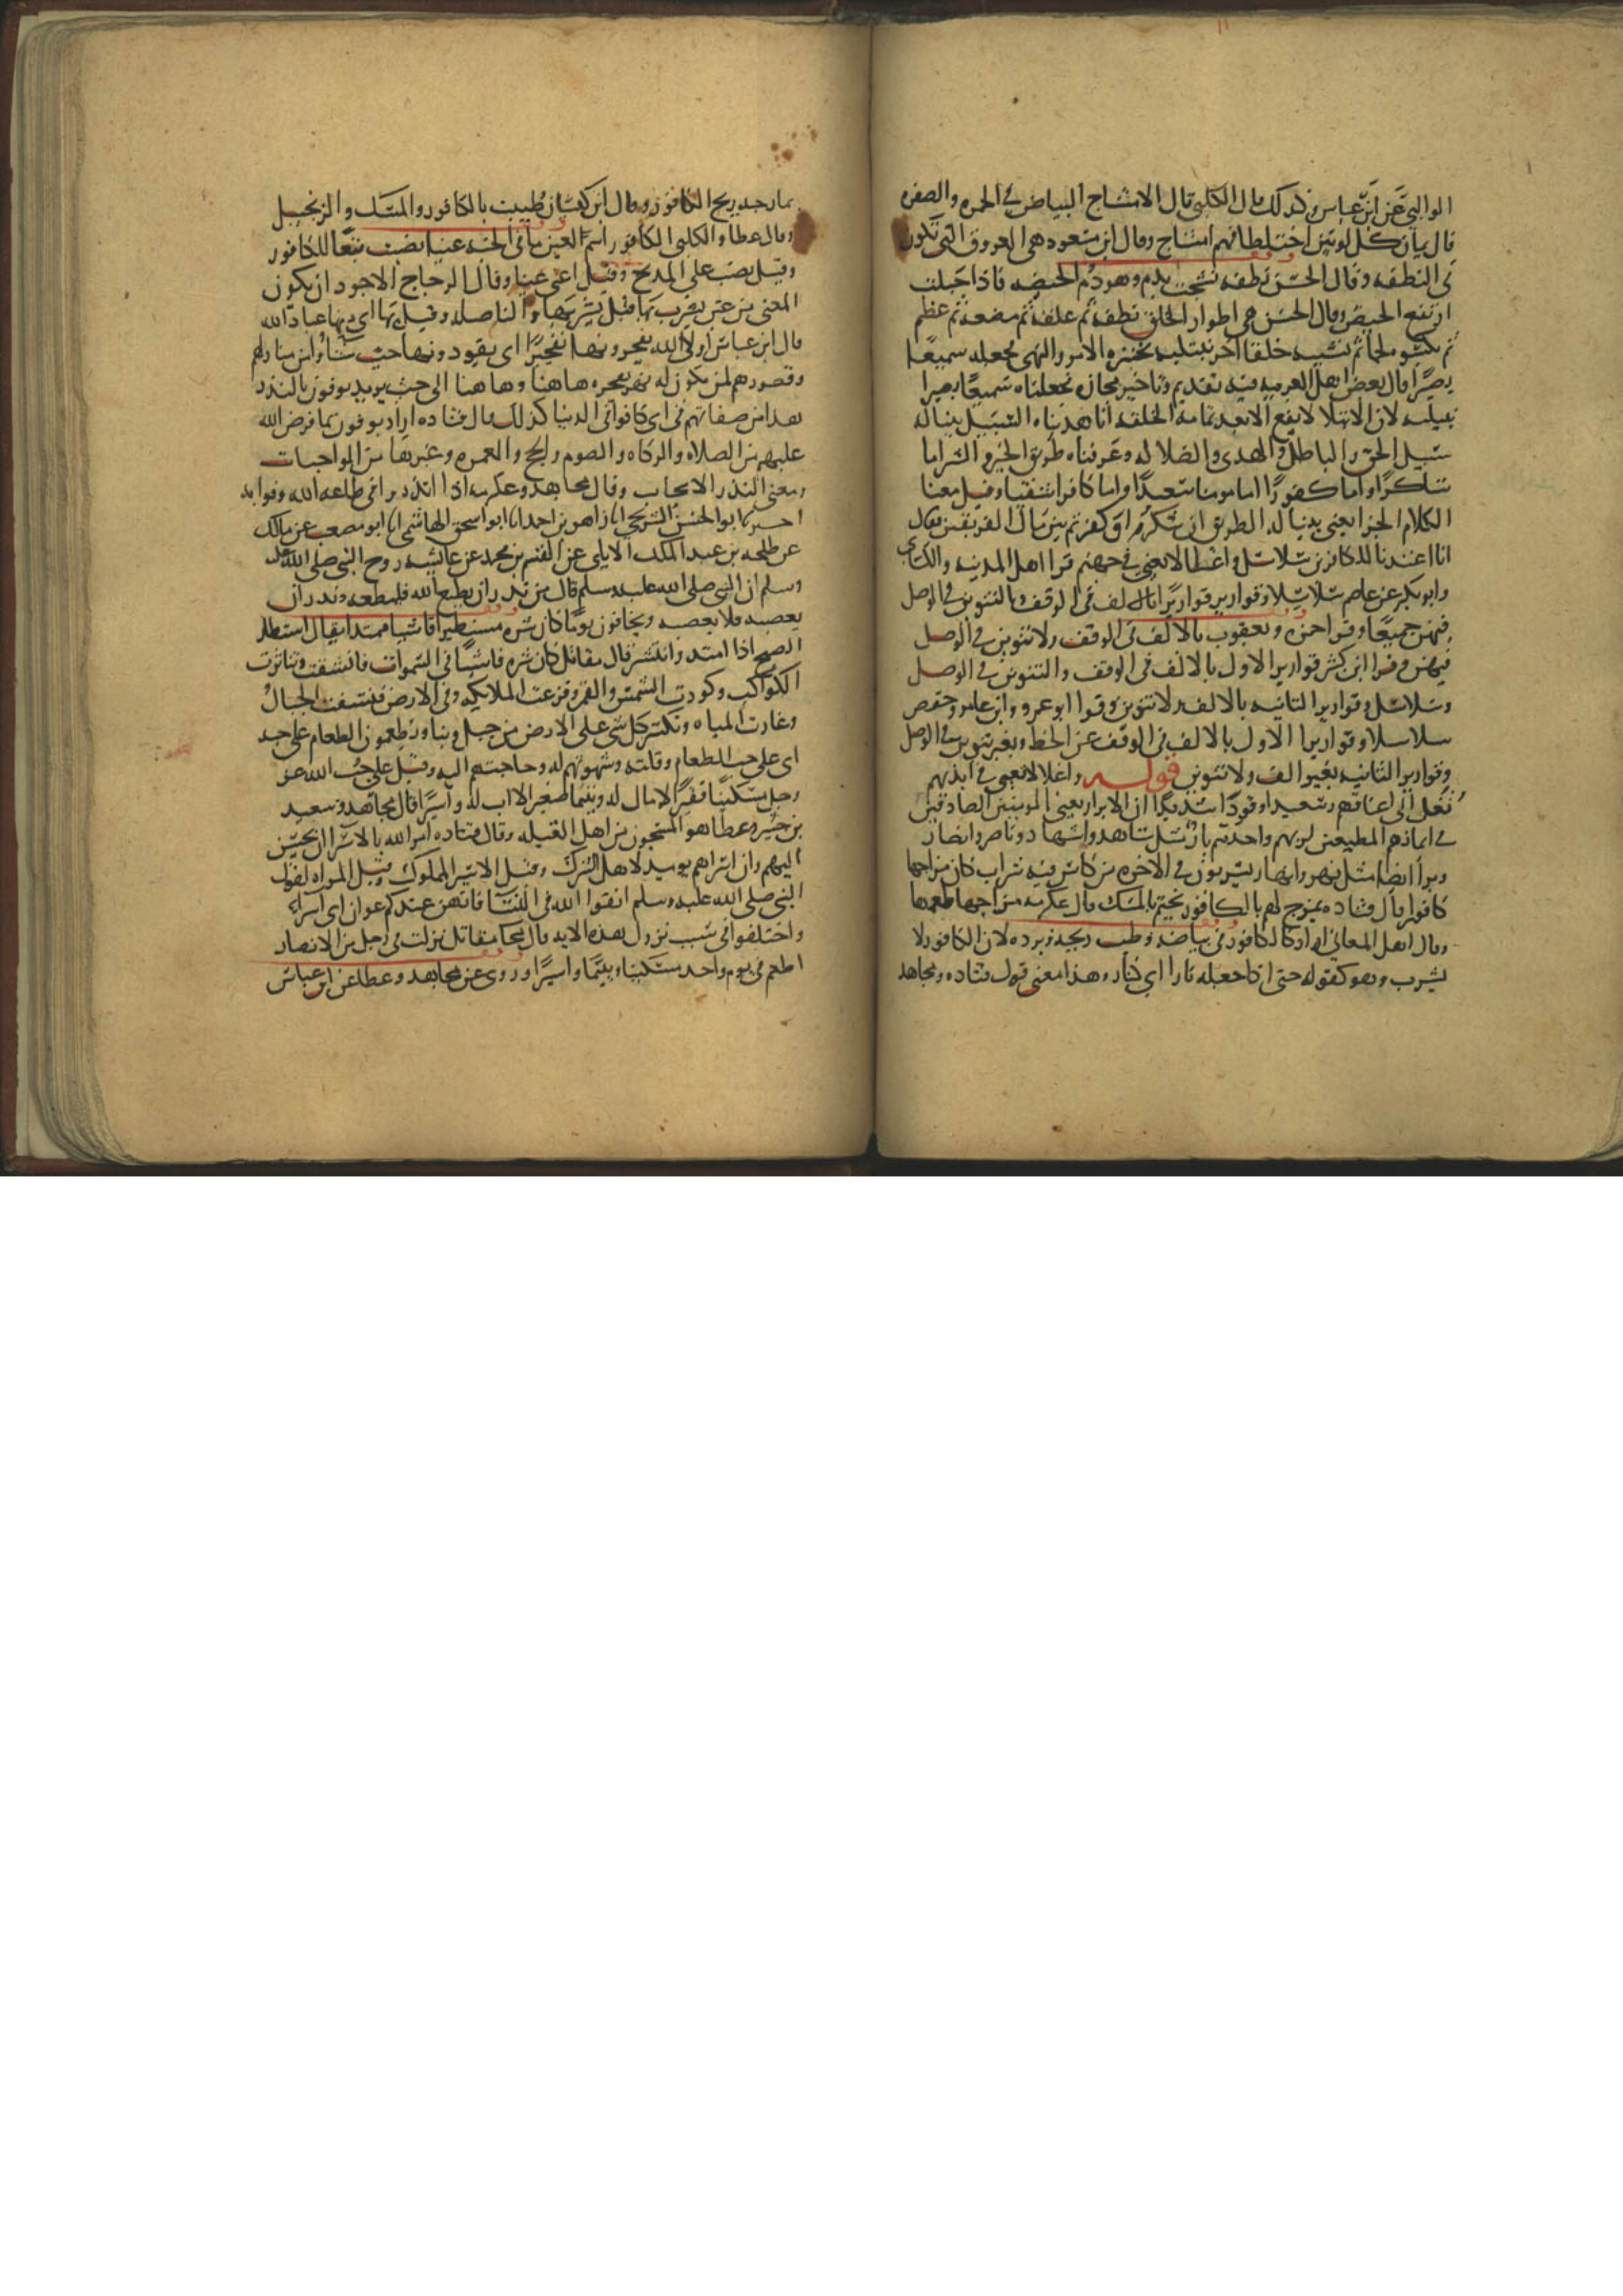 الوالبي عن ابن عباس وكذلك قال الكلبي قال الامشاج البياض في الحمره والصفره
قال يمان كل لونين اختلطا فهم امشاج وقال ابن مسعود هي العروق التي تكون
في النطفه وقال الحسن نطفه نشجت بدم وهو دم الحيضه فاذا حبلت
ارتفع الحيض وقال الحسن هي اطوار الخلق نطفه ثم علقه ثم مضغه ثم عظم
ثم يكسوه لحما ثم ينشيه خلقا اخر نبتليه نختبره الامر والنهي فجعله سميعا
بصيرا قال بعض اهل العربيه فيه تقديم وتاخير مجازه فجعلناه سميعا بصيرا
نبتليه لان الابتلا لا يقع الا بعد تمامه الخلقه انا هديناه السبيل بينا له
سبيل الحق والباطل والهدى والضلاله وعرفناه طريق الخير والشر اما
شاكرا واما كفورا اما مومنا سعيدا واما كافرا شقيا وقيل معنا
الكلام الجزا يعني بينا له الطريق ان شكر او كفر ثم بين ما للفريقين فقال
انا اعتدنا للكافرين سلاسل واغلالا يعني في جهنم قرا اهل المدينه والكساي
وابو بكر عن عاصم سلاسلا وقوارير قواريرا بالالف في الوقف وبالتنوين في الوصل
فيهن جميعا وقرا حمزه ويعقوب بلا الف في الوقف ولا تنوين في الوصل
فيهن وقرا ابن كثير قواريرا الاول بالالف في الوقف والتنوين في الوصل
وسلاسل وقواريرا الثانيه بلا الف ولا تنوين وقرا ابو عمرو وابن عامر وحفص
سلاسلا وقواريرا الاول بالالف في الوقف عن الخط وبغير تنوين في الوصل
وقوارير الثانيه بغير الف ولا تنوين قوله واغلالا يعني في ايديهم
تغل الى اعناقهم وسعيرا وقودا شديدا ان الابرار يعني المومنين الصادقين
في ايمانهم المطيعين لربهم واحدهم بار مثل شاهد واشهاد وناصر وانصار
وبرا ايضا مثل نهر وانهار يشربون في الاخره من كاس فيه شراب كان مزاجها
كافورا قال قتاده يمزج لهم بالكافور ويختم بالمسك قال عكرمه مزاجها طعمها
وقال اهل المعاني اراد كالكافور في بياضه وطيب ريحه وبرده لان الكافور لا
يشرب وهو كقوله حتى اذا جعله نارا اي كنار وهذا معنى قول قتاده ومجاهد
يمازجه ريح الكافور وقال ابن كيسان طيبت بالكافور والمسك والزنجبيل
وقال عطا والكلبي الكافور اسم لعين ما في الجنه عينا نصب تبعا للكافور
وقيل نصب على المدح وقيل اعني عينا وقال الزجاج الاجود ان يكون
المعنى من عين يشرب بها قيل يشربها والبا صله وقيل بها اي منها عباد الله
قال ابن عباس اوليا الله يفجرونها تفجيرا اي يقودونها حيث شاوا من منازلهم
وقصورهم لمن يكون له نهر يفجره هاهنا وهاهنا الى حيث يريد يوفون بالنذر
هذا من صفاتهم في اي كانوا في الدنيا كذلك قال قتاده اراد يوفون بما فرض الله
عليهم من الصلاه والزكاه والصوم والحج والعمره وغيرها من الواجبات
ومعنى النذر الايجاب وقال مجاهد وعكرمه اذا انذروا في طاعه الله وفوا به
اخبرنا ابو الحسن السرخسي انا زاهر بن احمد انا ابو اسحق الهاشمي انا ابو مصعب عن مالك
عن طلحه بن عبد الملك الايلي عن القسم بن محمد عن عايشه زوج النبي صلى الله عليه
وسلم ان النبي صلى الله عليه وسلم قال من نذر ان يطيع الله فليطعه ومن نذر ان
يعصيه فلا يعصه ويخافون يوما كان شره مستطيرا فاشيا ممتدا يقال استطار
الصبح اذا امتد وانتشر قال مقاتل كان شره فاشيا في السموات فانشقت وتناثرت
الكواكب وكورت الشمس والقمر وفزعت الملايكه وفي الارض فنسفت الجبال
وغارت المياه وتكسر كل شي على الارض من جبل وبنا ويطعمون الطعام على حبه
اي على حب الطعام وقلته وشهوتهم له وحاجتهم اليه وقيل على حب الله عز
وجل مسكينا فقيرا لا مال له ويتيما صغيرا لا اب له واسيرا قال مجاهد وسعيد
بن جبير وعطا هو المسجون من اهل القبله وقال قتاده امر الله بالاسرا ان يحسن
اليهم وان اسراهم يوميذ لاهل الشرك وقيل الاسير المملوك وقيل المراه لقول
النبي صلى الله عليه وسلم اتقوا الله في النسا فانهن عندكم عوان اي اسراء
واختلفوا في سبب نزول هذه الايه قال مقاتل نزلت في رجل من الانصار
اطعم في يوم واحد مسكينا ويتيما واسيرا وروى عن مجاهد وعطا عن ابن عباس